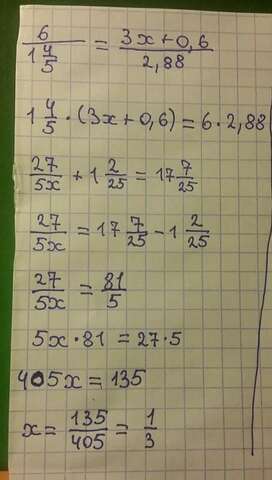 6 / 1 4/5 = (3x+0,6) / 2,88
1 4/5 · (3x+0,6) = 6 · 2,88
27/5x + 1 2/25 = 17 7/25
27/5x = 17 7/25 - 1 2/25
27/5x = 81/5
5x · 81 = 27 · 5
405x = 135
x = 135/405 = 1/3